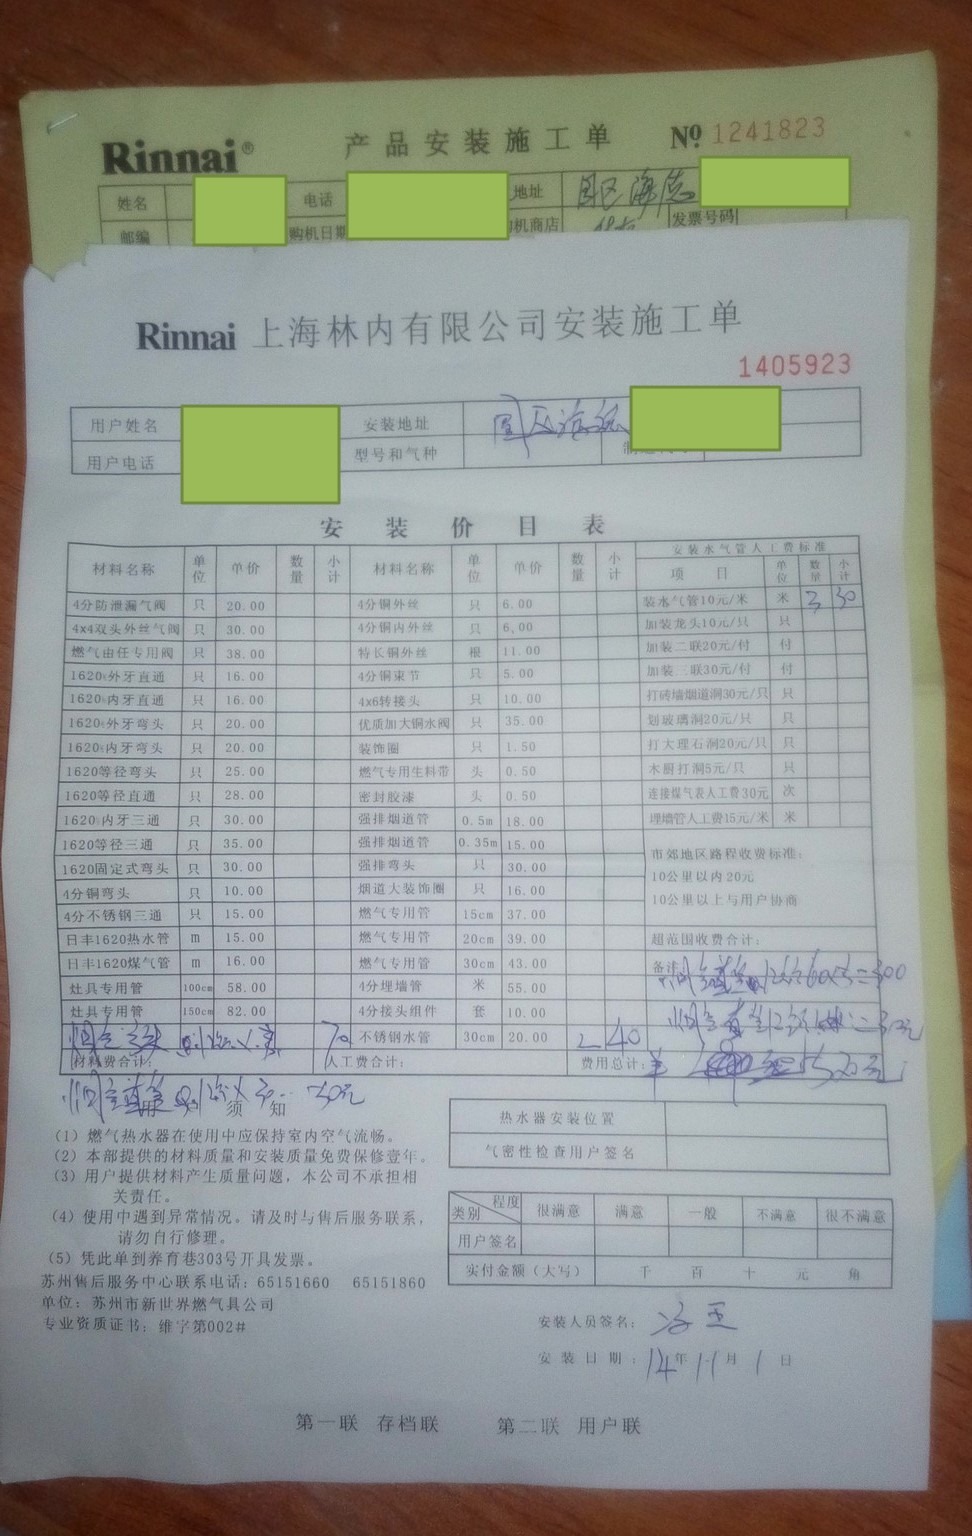 Rinnai® 产品安装施工单 Nº 1241823
姓名 电话 地址
邮编 购机日期 机商店 发票号码
Rinnai 上海林内有限公司安装施工单
1405923
用户姓名 安装地址
用户电话 型号和气种
安装价目表
材料名称 单位 单价 数量 小计 材料名称 单位 单价 数量 小计 安装水气管人工费标准
项目 单位 数量 小计
4分防泄漏气阀 只 20.00 4分铜外丝 只 6.00 装水气管10元/米 米 3 30
4x4双头外丝气阀 只 30.00 4分铜内外丝 只 6.00 加装龙头10元/只 只
燃气由任专用阀 只 38.00 特长铜外丝 根 11.00 加装二联20元/付 付
1620外牙直通 只 16.00 4分铜束节 只 5.00 加装三联30元/付 付
1620内牙直通 只 16.00 4x6转接头 只 10.00 打砖墙烟道洞30元/只 只
1620外牙弯头 只 20.00 优质加大铜水阀 只 35.00 划玻璃洞20元/只 只
1620内牙弯头 只 20.00 装饰圈 只 1.50 打大理石洞20元/只 只
1620等径弯头 只 25.00 燃气专用生料带 头 0.50 木厨打洞5元/只 只
1620等径直通 只 28.00 密封胶漆 头 0.50 连接煤气表人工费30元 次
1620内牙三通 只 30.00 强排烟道管 0.5m 18.00 埋墙管人工费15元/米 米
1620等径三通 只 35.00 强排烟道管 0.35m 15.00 市郊地区路程收费标准:
1620固定式弯头 只 30.00 强排弯头 只 30.00 10公里以内20元
4分铜弯头 只 10.00 烟道大装饰圈 只 16.00 10公里以上与用户协商
4分不锈钢三通 只 15.00 燃气专用管 15cm 37.00
日丰1620热水管 m 15.00 燃气专用管 20cm 39.00 超范围收费合计:
日丰1620煤气管 m 16.00 燃气专用管 30cm 43.00 备注
灶具专用管 100cm 58.00 4分埋墙管 米 55.00
灶具专用管 150cm 82.00 4分接头组件 套 10.00
70 不锈钢水管 30cm 20.00 2 40
材料费合计: 人工费合计: 费用总计:
用 须知
(1) 燃气热水器在使用中应保持室内空气流畅。
(2) 本部提供的材料质量和安装质量免费保修壹年。
(3) 用户提供材料产生质量问题，本公司不承担相
关责任。
(4) 使用中遇到异常情况，请及时与售后服务联系，
请勿自行修理。
(5) 凭此单到养育巷303号开具发票。
苏州售后服务中心联系电话: 65151660 65151860
单位: 苏州市新世界燃气具公司
专业资质证书: 维字第002#
热水器安装位置
气密性检查用户签名
类别 程度 很满意 满意 一般 不满意 很不满意
用户签名
实付金额（大写） 千 百 十 元 角
安装人员签名:
安装日期: 14年11月1日
第一联 存档联 第二联 用户联